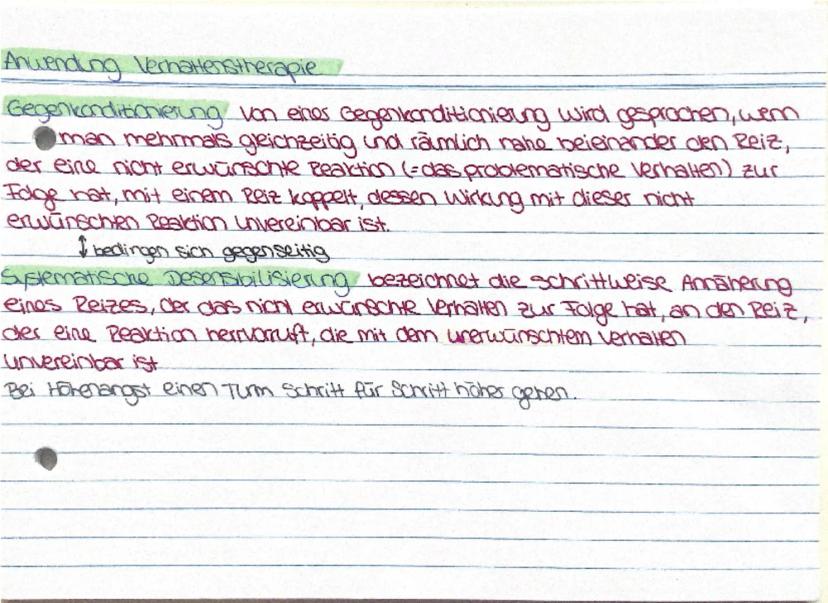 Anwendung Verhaltenstherapie
Gegenkonditionierung Von einer Gegenkonditionierung wird gesprochen, wenn
man mehrmals gleichzeitig und räumlich nahe beieinander den Reiz,
der eine nicht erwünschte Reaktion (=das problematische Verhalten) zur
Folge hat, mit einem Reiz koppelt, dessen Wirkung mit dieser nicht
erwünschen Reaktion unvereinbar ist.
↕ bedingen sich gegenseitig
Systematische Desensibilisierung bezeichnet die schrittweise Annäherung
eines Reizes, der das nicht erwünschte Verhalten zur Folge hat, an den Reiz,
der eine Reaktion hervorruft, die mit dem unerwünschtem Verhalten
unvereinbar ist
Bei Höhenangst einen Turm Schritt für Schritt höher gehen.